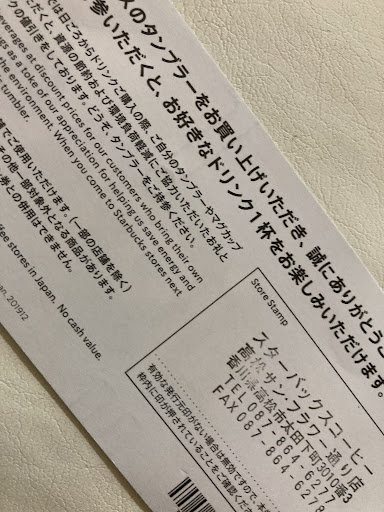 スのタンブラーをお買い上げいただき、誠にありがとうご
参いただくと、お好きなドリンク1杯をお楽しみいただけます。
では日ごろからドリンクご購入の際、ご自分のタンブラーやマグカップ
だくと、資源の節約および環境負荷軽減にご協力いただいたお礼と
クの値引きをしております。どうぞ、タンブラーをご持参ください。
beverages at discount prices for our customers who bring their own
as a toke of our appreciation for helping to save energy and
the environment. When you come to Starbucks stores next
tumbler.
でご使用いただけます。(一部の店舗を除く)
の他一部対象外となる商品があります。
券との併用はできません。
fee stores in Japan. No cash value.
an. 2019)2
Store Stamp
スターバックスコーヒー
高松サンフラワー通り店
香川県高松市太田下町3010番3
TEL 087-864-627
FAX 087-864-628
有効な発行元印がない場合は無効ですので、本
枠内に印が押されていることをご確認くだ